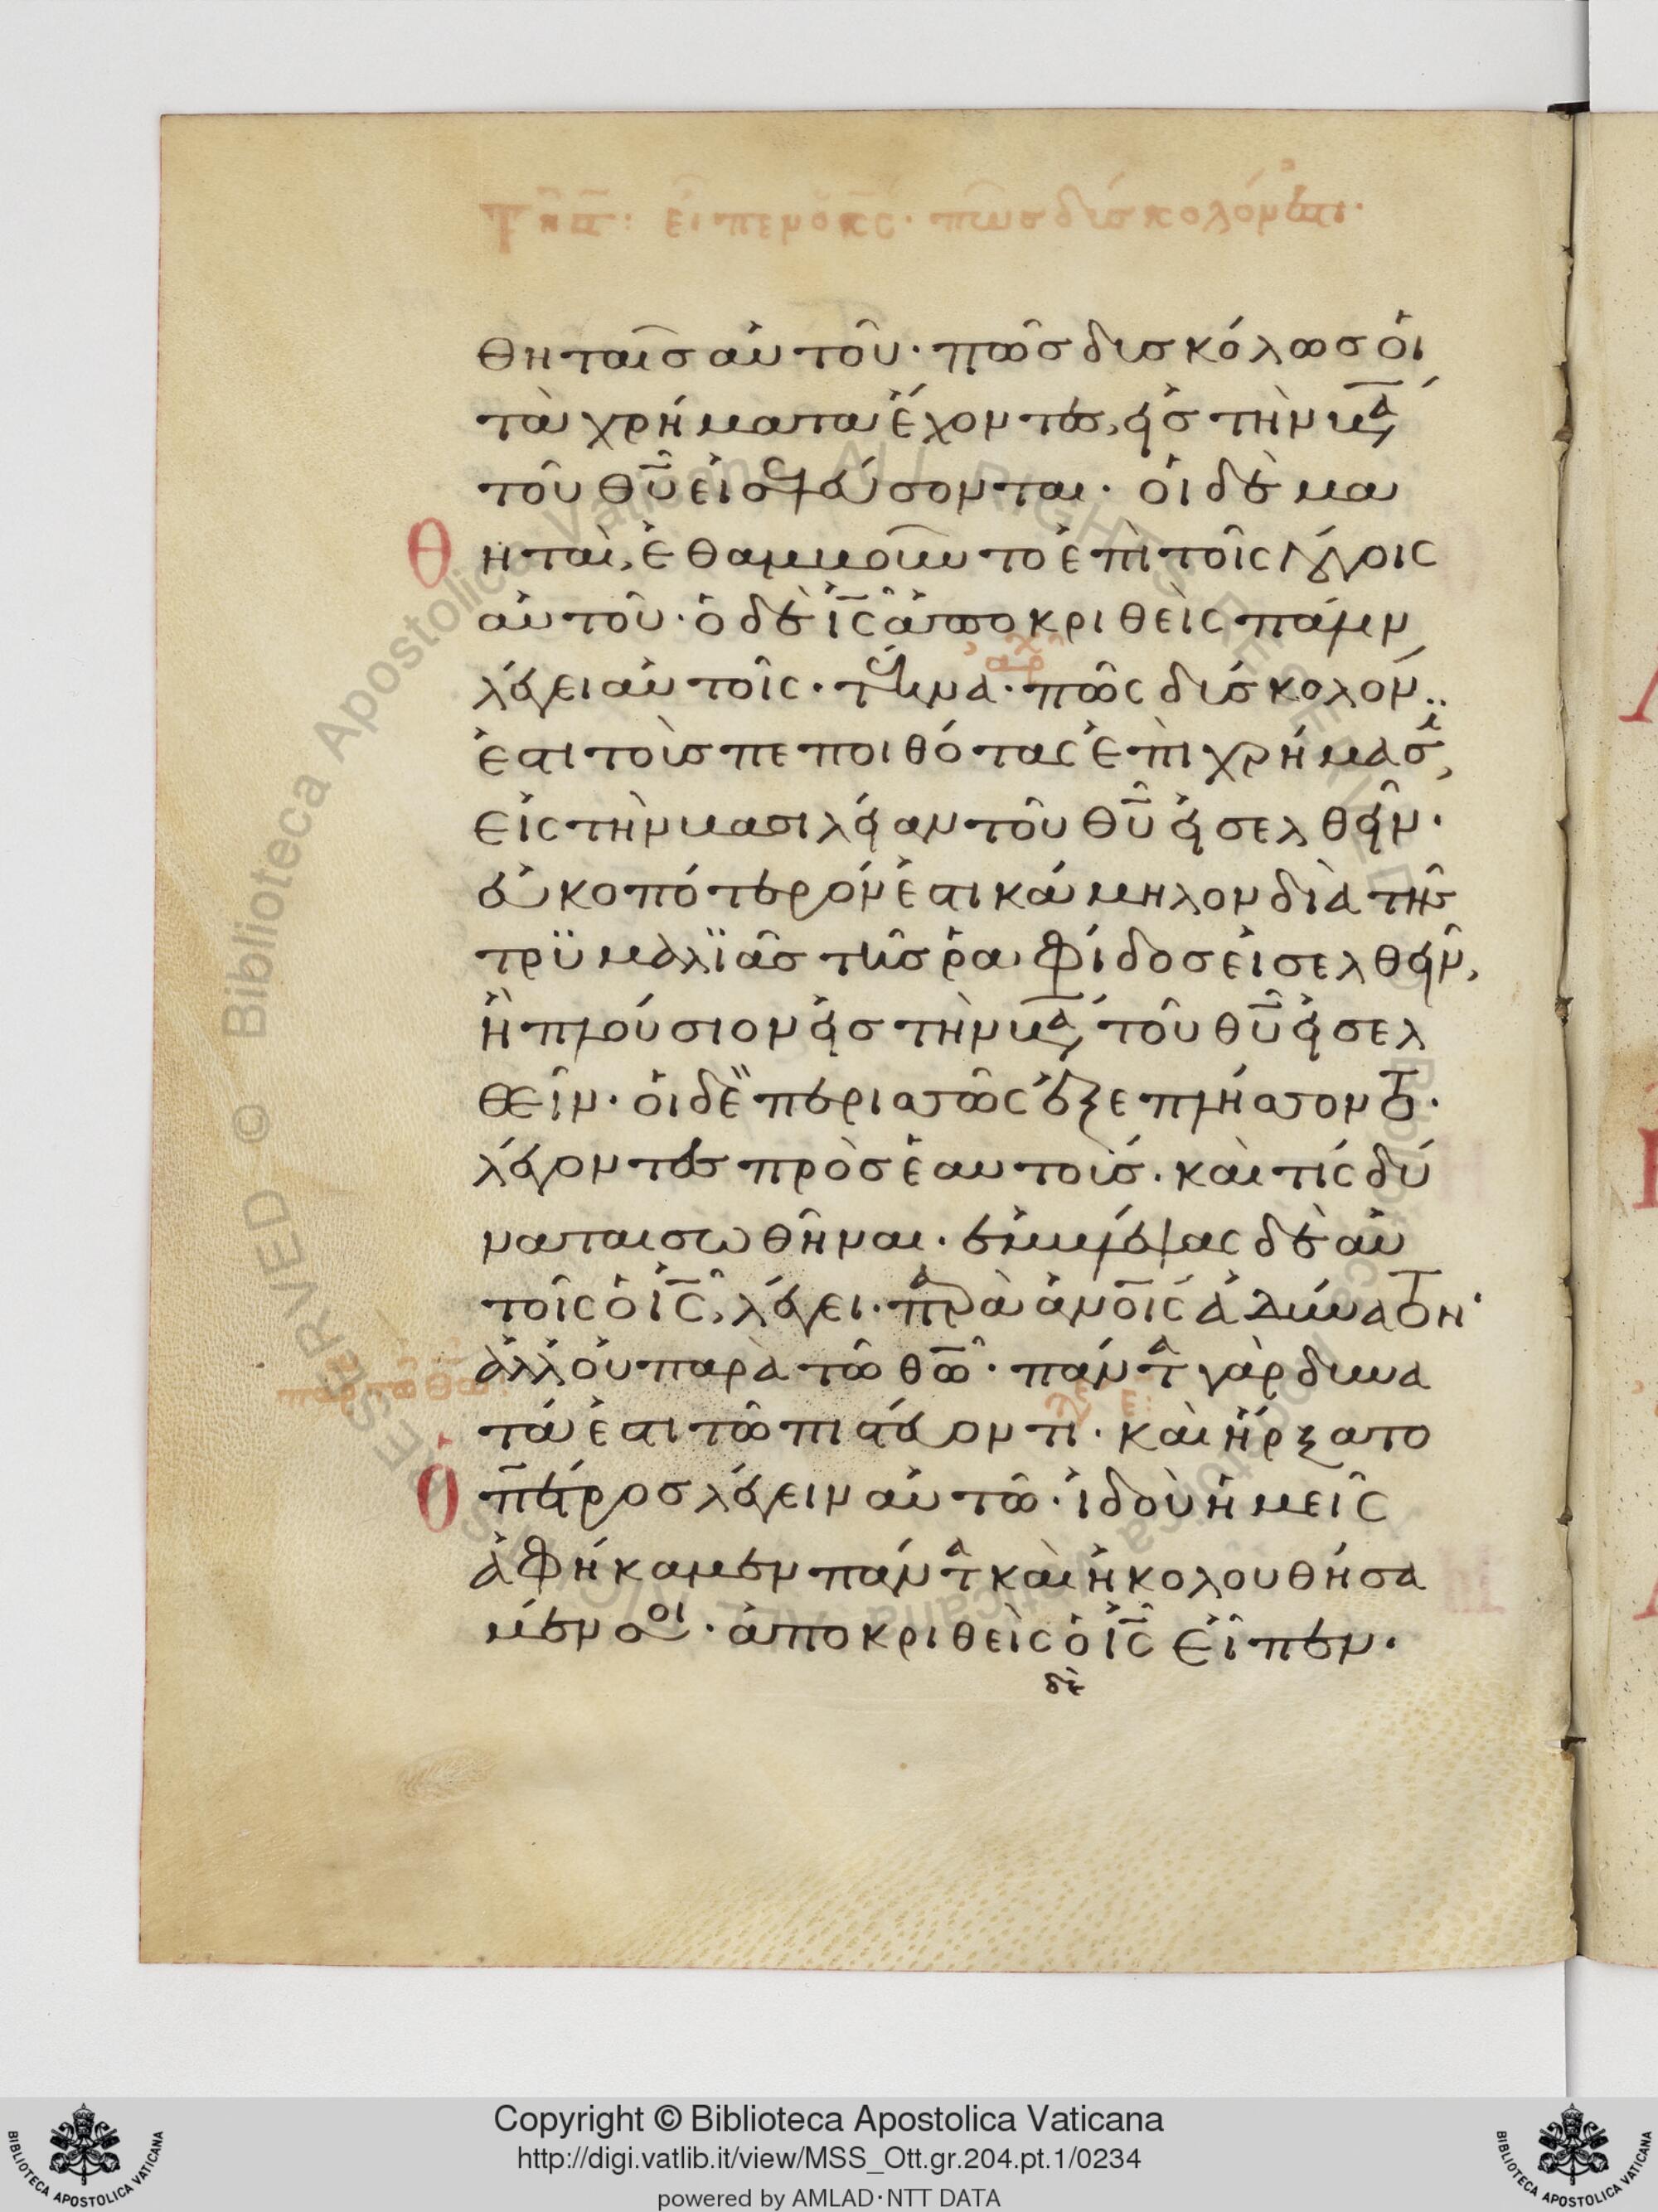 Τῆ π̅: εἶπεν ὁ κ̅ς̅· πῶς δύσκολόν ἐστι·
θηταῖς αὐτοῦ· πῶς δυσκόλως οἱ
τὰ χρήματα ἔχοντες, εἰς τὴν β̅α̅
τοῦ θ̅υ̅ εἰσελεύσονται· οἱ δὲ μα
θηταὶ, ἐθαμβοῦντο ἐπὶ τοῖς λόγοις
αὐτοῦ· ὁ δὲ ι̅ς̅ ἀποκριθεὶς πάλιν
λέγει αὐτοῖς· τέκνα· πῶς δύσκολόν
ἐστι τοὺς πεποιθότας ἐπὶ χρήμασι,
εἰς τὴν βασιλείαν τοῦ θ̅υ̅ εἰσελθεῖν·
εὐκοπώτερόν ἐστι κάμηλον διὰ τῆς
τρϋμαλϊᾶς τῆς ῥαφίδος εἰσελθεῖν,
ἢ πλούσιον εἰς τὴν β̅α̅ τοῦ θ̅υ̅ εἰσελ
θεῖν· οἱ δὲ περισσῶς ἐξεπλήσσοντο·
λέγοντες πρὸς ἑαυτούς· καὶ τίς δύ
ναται σωθῆναι· ἐμβλέψας δὲ αὐ
τοῖς ὁ ι̅ς̅, λέγει· παρὰ α̅ν̅ο̅ι̅ς̅ ἀδύνατον
ἀλλ' οὐ παρὰ τῶ θ̅ω̅· πάντα γὰρ δυνα
τά ἐστι τῶ πιστεύοντι· καὶ ἤρξατο
ὁ πέτρος λέγειν αὐτῶ· ἰδοὺ ἡμεῖς
ἀφήκαμεν πάντα καὶ ἠκολουθήσα
μέν σοι· ἀποκριθεὶς ὁ ι̅ς̅ εἶπεν·
δὲ
Copyright © Biblioteca Apostolica Vaticana
http://digi.vatlib.it/view/MSS_Ott.gr.204.pt.1/0234
powered by AMLAD·NTT DATA